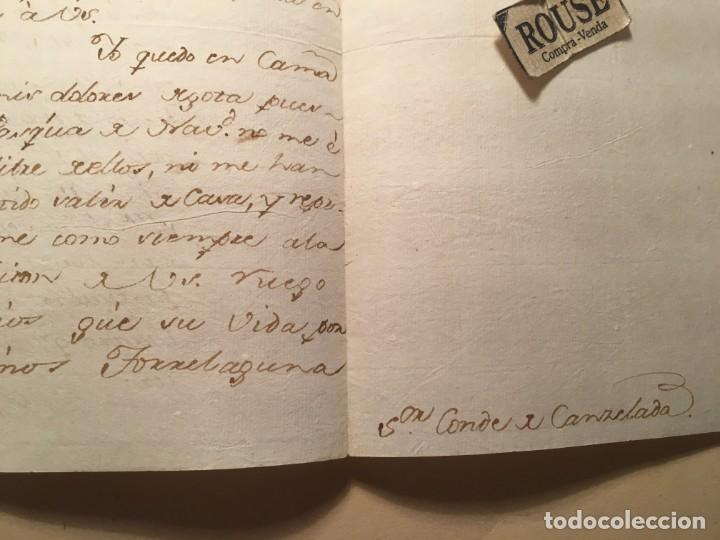 à Vs.
Yo quedo en Cama
mis dolores de gota pues
Pasqua de Nav.d no me è
libre de ellos, ni me han
tido salir de Casa, y repi-
me como siempre a la
de Vs. ruego
que su Vida por
Torrelaguna
S.or Conde de Canzelada.
ROUSE
Compra-Venda
todocoleccion.net